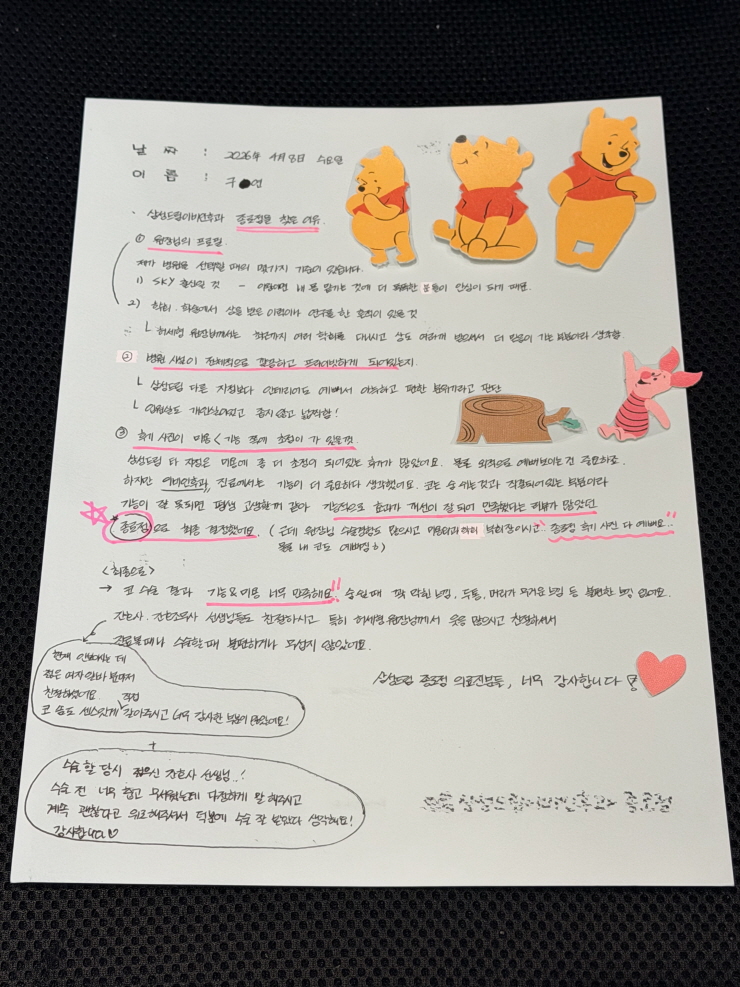 날 짜 : 2026年 4月 8日 수요일
이 름 : 구 연
· 삼성드림이비인후과 종로점을 찾은 이유
① 원장님의 프로필
제가 병원을 선택할 때의 몇가지 기준이 있습니다.
1) SKY 출신일 것 - 이왕이면 내 몸 맡기는 것에 더 똑똑한 분들이 안심이 되기 때문
2) 학회·학술에서 상을 받은 이력이나 연구를 한 흔적이 있을 것
∴ ㄴ 허세형 원장님께서는 최근까지 여러 학회를 다니시고 상도 여러개 받으셔서 더 믿음이 가는 부분이라 생각함.
② 병원 시설이 전체적으로 깔끔하고 프라이빗하게 되어있는지.
ㄴ 삼성드림 다른 지점보다 인테리어도 예뻐서 아늑하고 편한 분위기라고 판단
ㄴ 입원실도 개인실이었고 공지 좋고 넓직함!
③ 후기 사진이 미용 < 기능 쪽에 초점이 가 있을것
삼성드림 타 지점은 미용에 좀 더 초점이 되어있는 후기가 많았어요. 물론 외적으로 예뻐보이는건 중요하죠.
하지만 이비인후과 진료에서는 기능이 더 중요하다 생각했어요. 코는 숨 쉬는것과 직결되어있는 부분이라
기능이 잘 못되면 평생 고생할꺼 같아 기능적으로 효과가 개선이 잘 되어 만족했다는 리뷰가 많았던
종로점으로 최종 결정했어요. (근데 원장님 수술경험도 많으시고 미용외과학회 부회장이시고.. 종로점 후기 사진 다 예뻐요..
물론 내 코도 예뻐짐 ㅎ)
<최종으로>
→ 코 수술 결과 기능&미용 너무 만족해요!! 숨 쉴 때 꽉 막힌 느낌, 두통, 머리가 무거운 느낌 등 불편한 느낌 없어요.
간호사·간호조무사 선생님들도 친절하시고 특히 허세형 원장님께서 웃음 많으시고 친절하셔서
진료볼 때나 수술할 때 불편하거나 무섭지 않았어요.
현재 안보이시는 데
젊은 여자분이 본대서
친절하셨어요. 직접
코 솜도 센스있게 갈아주시고 너무 감사한 부분이 많았어요!
삼성드림 종로점 의료진분들, 너무 감사합니다!
+
수술 할 당시 젊으신 간호사 선생님..!
수술 전 너무 춥고 무서웠는데 다정하게 말 해주시고
계속 괜찮다고 위로해주셔서 덕분에 수술 잘 받았다 생각해요!
감사합니다♡